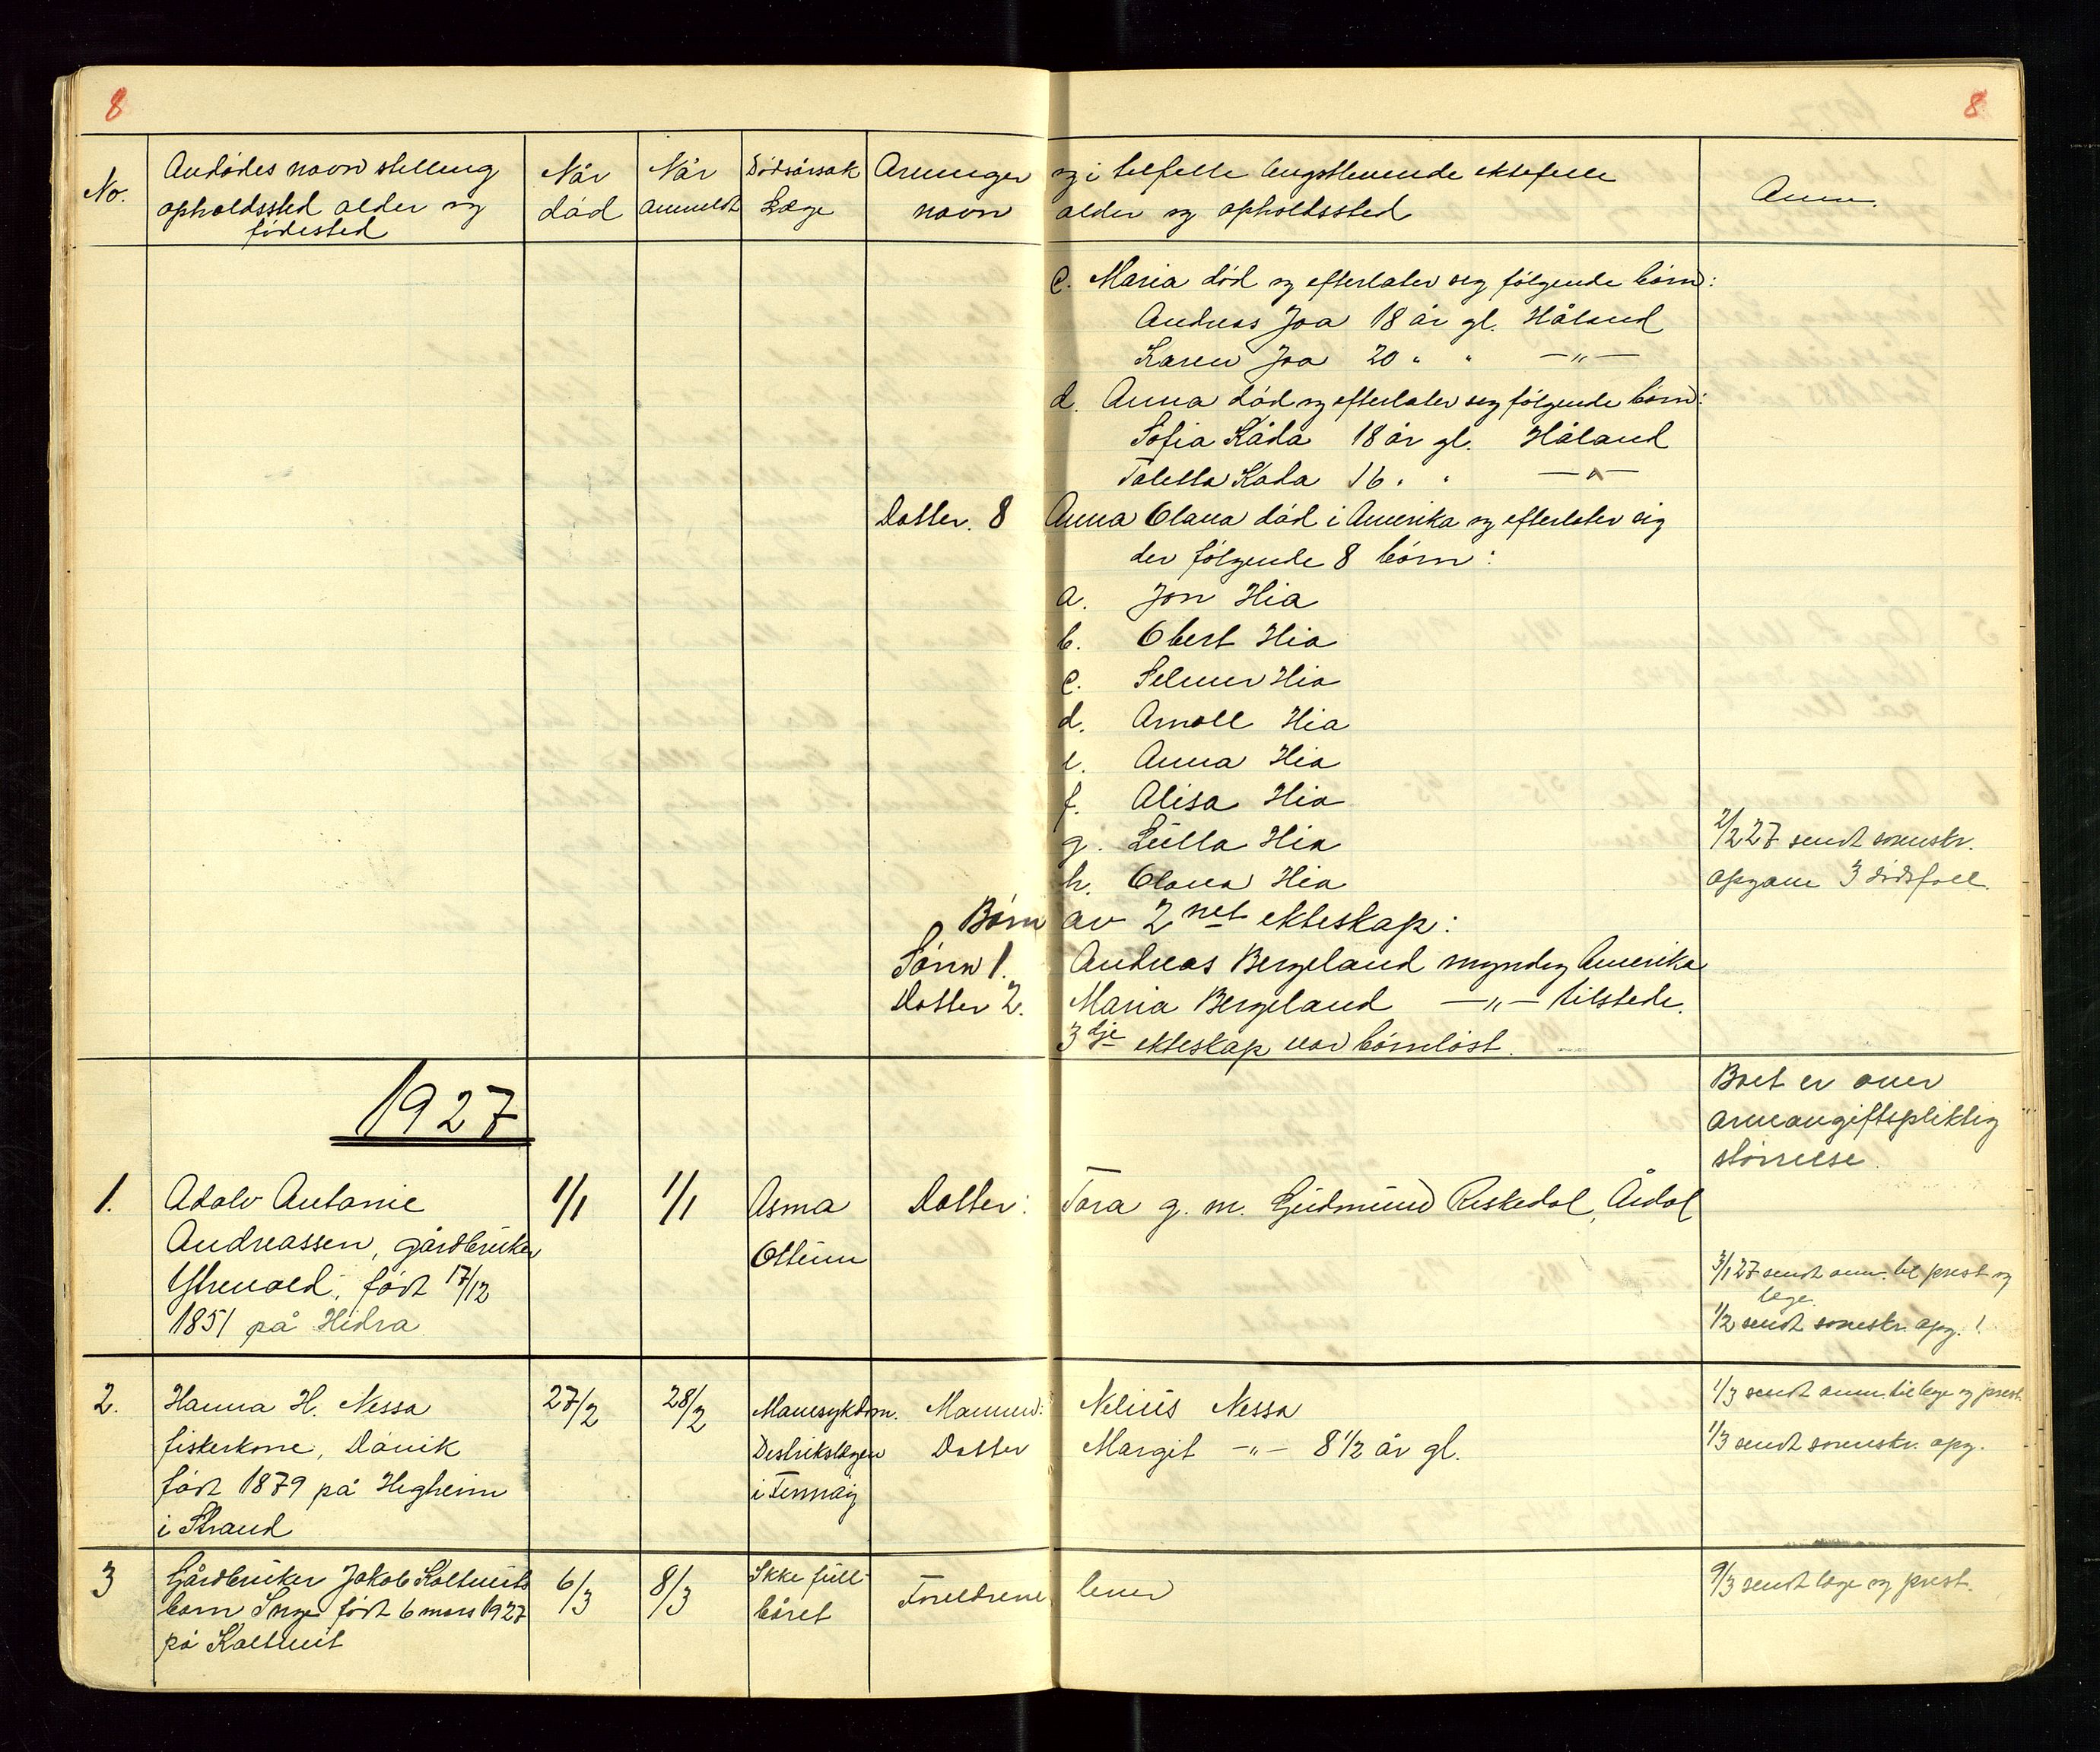 8
8
No.
Avdødes navn stelling
opholdssted alder og
fødested
Når
død
Når
anmeldt
Dødsårsak
Læge
Arvinger
navn
og i telfelle lengstlevende ektefelle
alder og opholdssted
Anm.
c. Maria død og efterlater seg følgende børn:
Andreas Joa 18 år gl. Håland
Karen Joa 20 " " —"—
d. Anna død og efterlater seg følgende børn:
Sofia Kåda 18 år gl. Håland
Kåda 16 " " —"—
Datter. 8 Anna Olava død i Amerika og efterlater sig
der følgende 8 børn:
a. Jon Hia
b. Obert Hia
c. Selmer Hia
d. Arnoll Hia
e. Anna Hia
f. Alisa Hia
g. Lülla Hia
h. Olava Hia
2/2 27 sendt sorenskr.
opgave 3 dødsfall.
Børn av 2net ekteskap:
Sønn 1. Andreas Bergeland myndig Amerika
Datter 2. Maria Bergeland —"— tilstede.
3dje ekteskap var børnløst.
1927
Boet er over
arveavgiftspliktig
størrelse.
1. Adolv Antonie
Andreassen, gårdbrüker
født 17/12
1851 på Hidra
1/1
1/1
Asma
Ottesen
Datter: Tora g. m. Güdmünd Riskedal, Årdal
3/1 27 sendt anm. til prest og
læge.
1/2 sendt sorenskr. opg. !
2. Hanna H. Nessa
fiskerkone,
født 1879 på Hegheim
i Strand
27/2
28/2
Mavesykdom.
Destriktslægen
i
Mannen:
Datter
Neliüs Nessa
Margit —"— 8 1/2 år gl.
1/3 sendt anm. til læge og prest.
1/3 sendt sorenskr. opg.
3 Gårdbrüker Jakob Koltveits
barn Inge født 6 mars 1927
på Koltveit
6/3
8/3
Ikke füll-
båret
Foreldrene lever
9/3 sendt læge og prest.